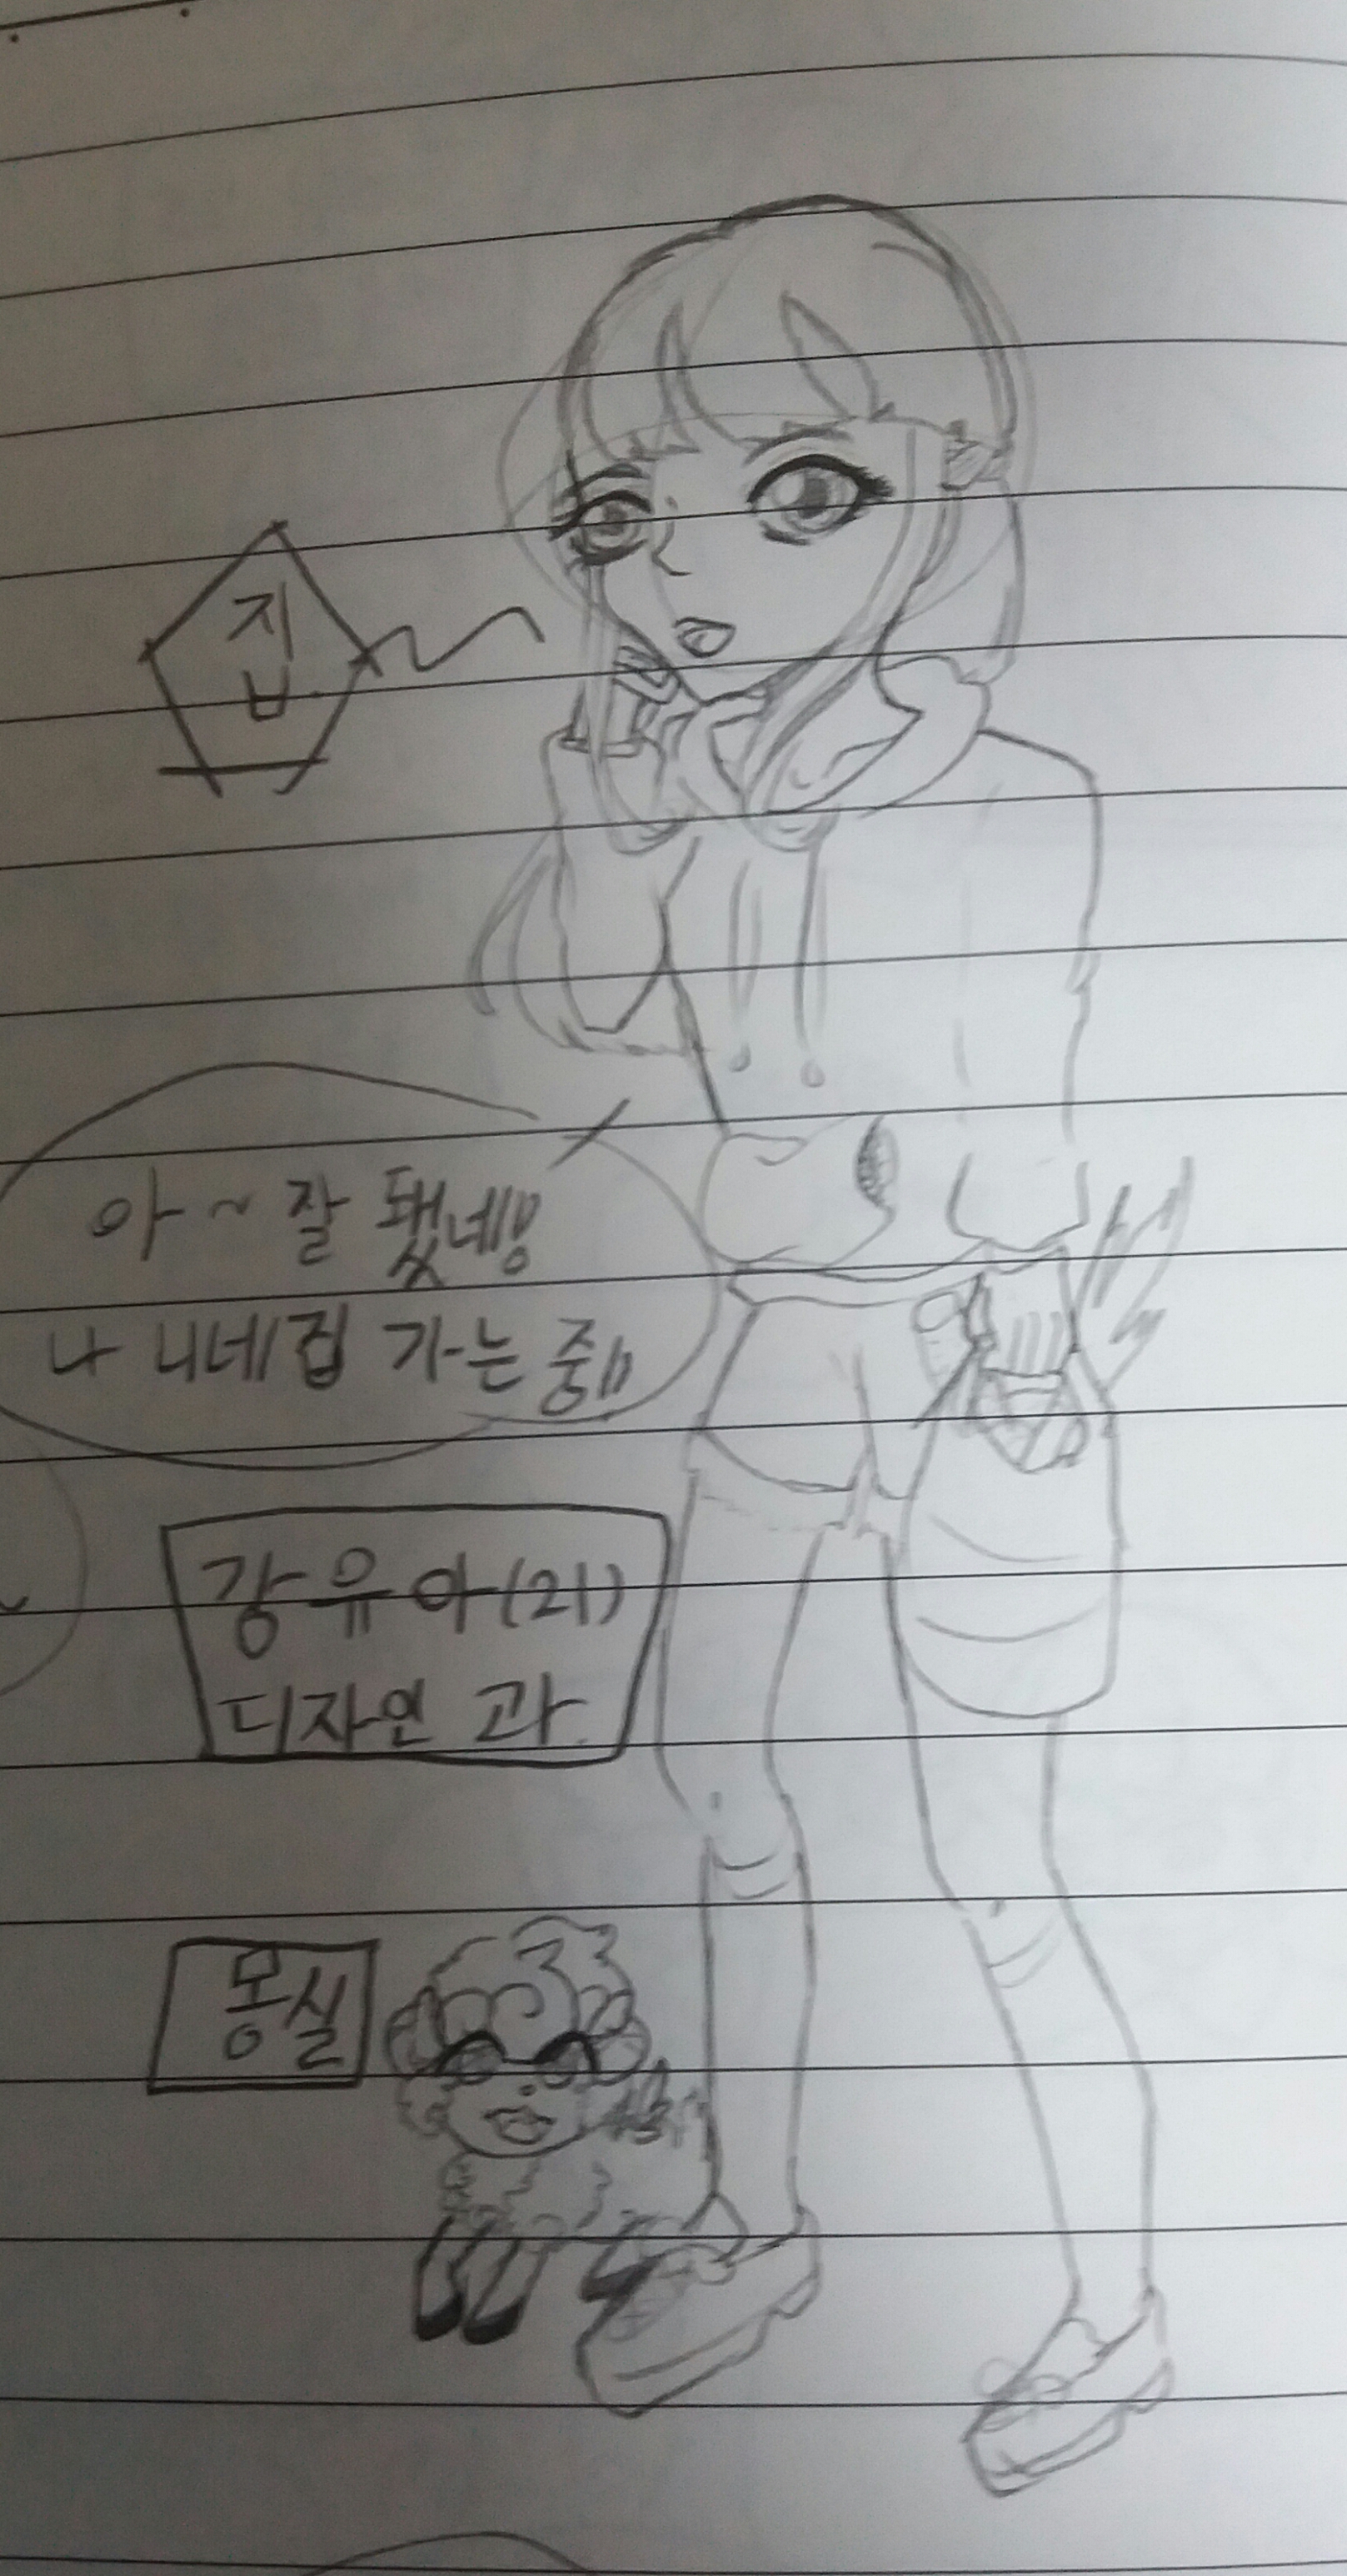 집
아~ 잘 됐네용
나 니네집 가는 중!!
강유아(21)
디자인 과
몽실